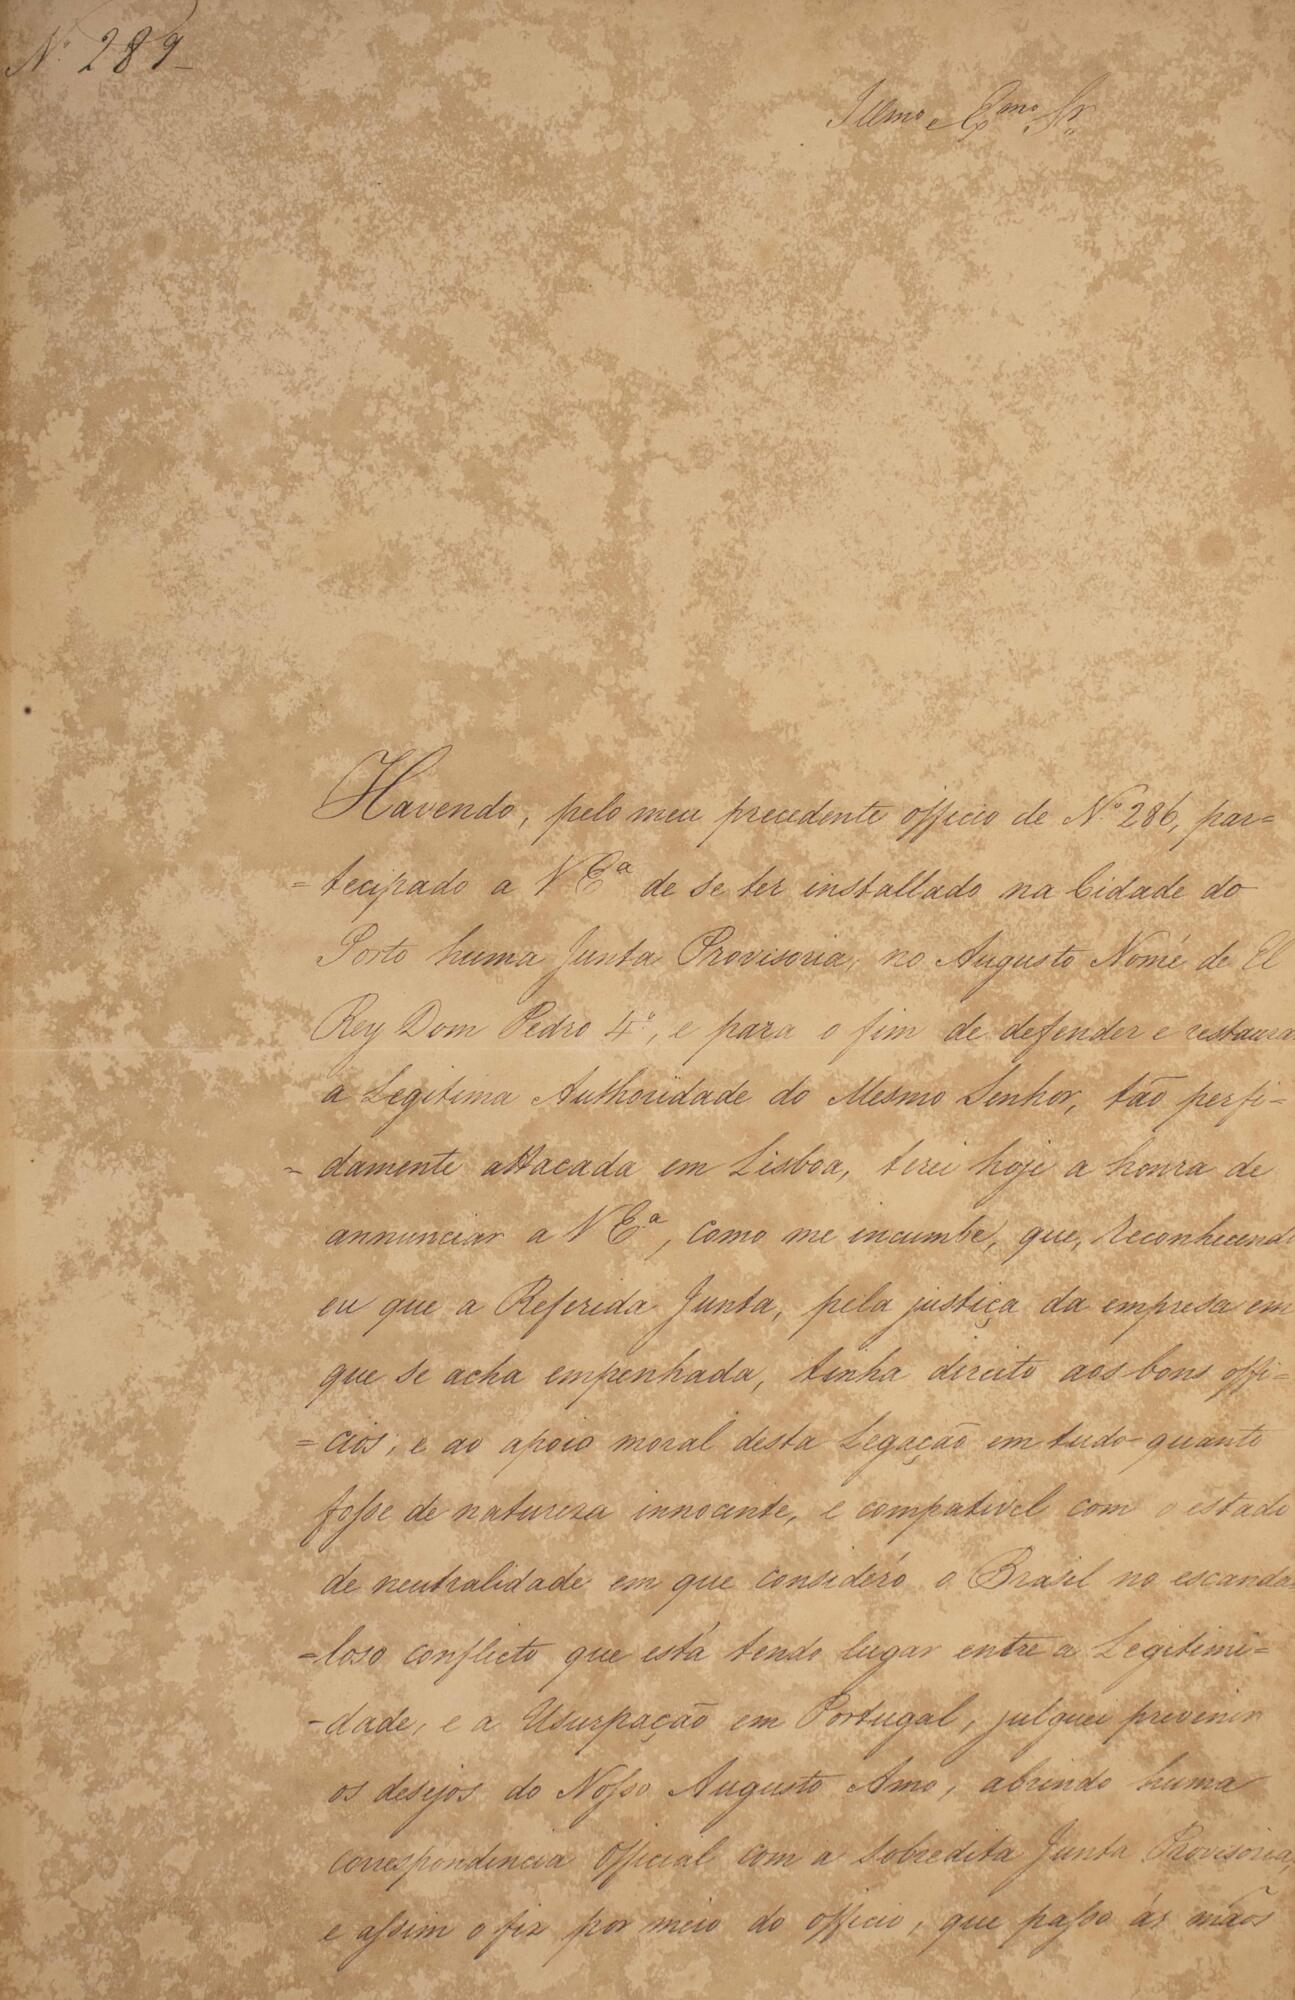 Nº 289
Illmo e Exmo Sr.
Havendo, pelo meu precedente officio de Nº 286, par=
=tecipado a V Exª de se ter installado na Cidade do
Porto huma Junta Provisoria, no Augusto Nome de El
Rey Dom Pedro 4º, e para o fim de defender e restaurar
a Legitima Authoridade do Mesmo Senhor, tão perfi=
=damente attacada em Lisboa, terei hoje a honra de
annunciar a V Exª, como me incumbe, que, reconhecendo
eu que a Referida Junta, pela justiça da empresa em
que se acha empenhada, tinha direito aos bons offi=
=cios, e ao apoio moral desta Legação em tudo quanto
fosse de natureza innocente, e compativel com o estado
de neutralidade em que considéro o Brasil no escanda=
=loso conflicto que está tendo lugar entre a Legitimi=
=dade, e a Usurpação em Portugal, julguei prevenir
os desejos do Nosso Augusto Amo, abrindo huma
correspondencia Official com a sobredita Junta Provisoria,
e assim o fiz por meio do officio, que passo ás mãos